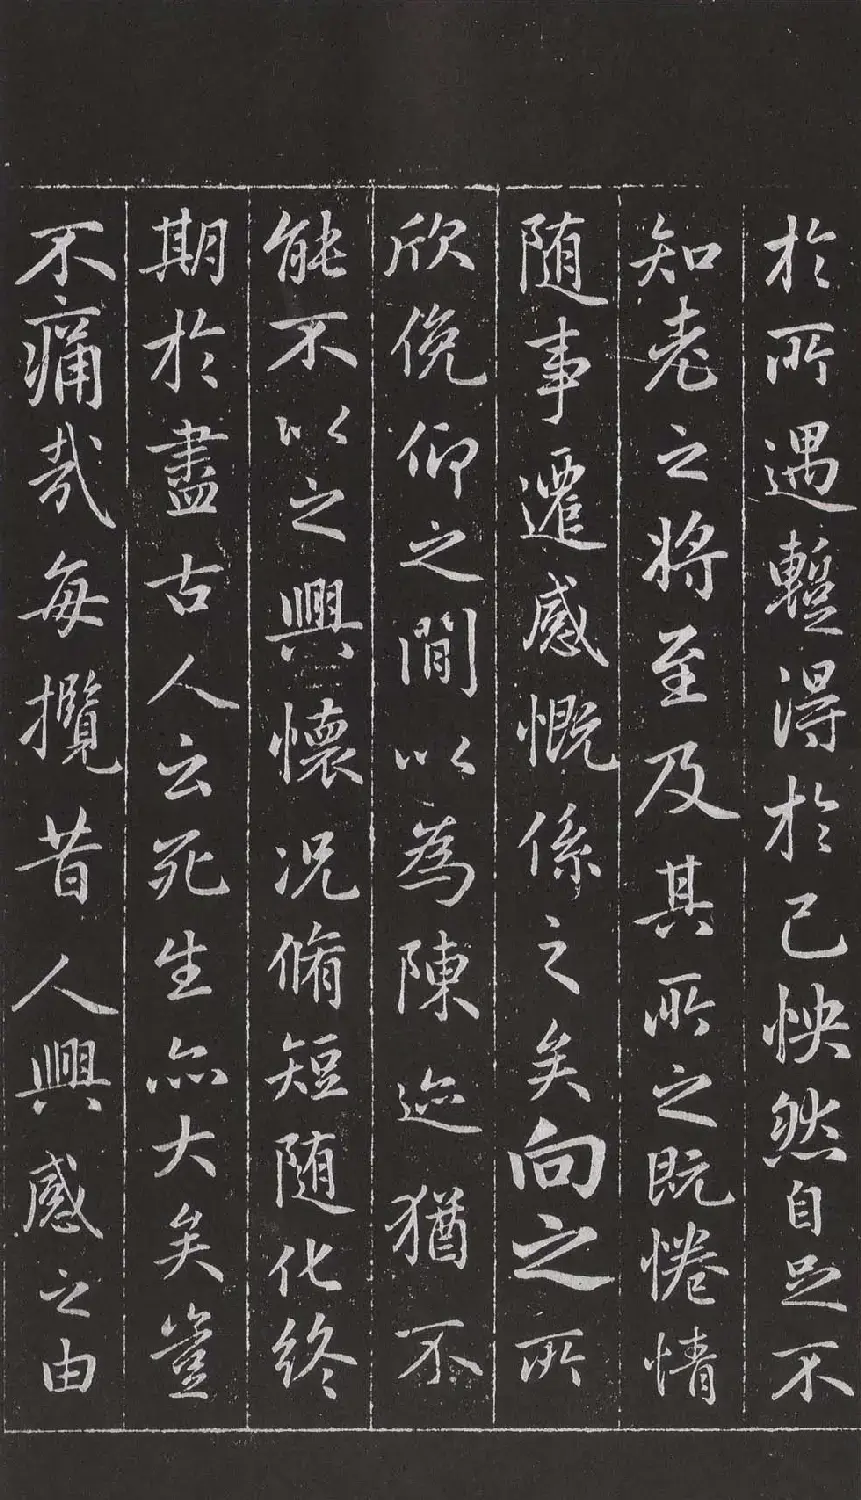 於所遇蹔得於己怏然自足不
知老之將至及其所之既惓情
随事遷感慨係之矣向之所
欣俛仰之閒以為陳迹猶不
能不以之興懷况脩短随化終
期於盡古人云死生亦大矣豈
不痛哉每攬昔人興感之由